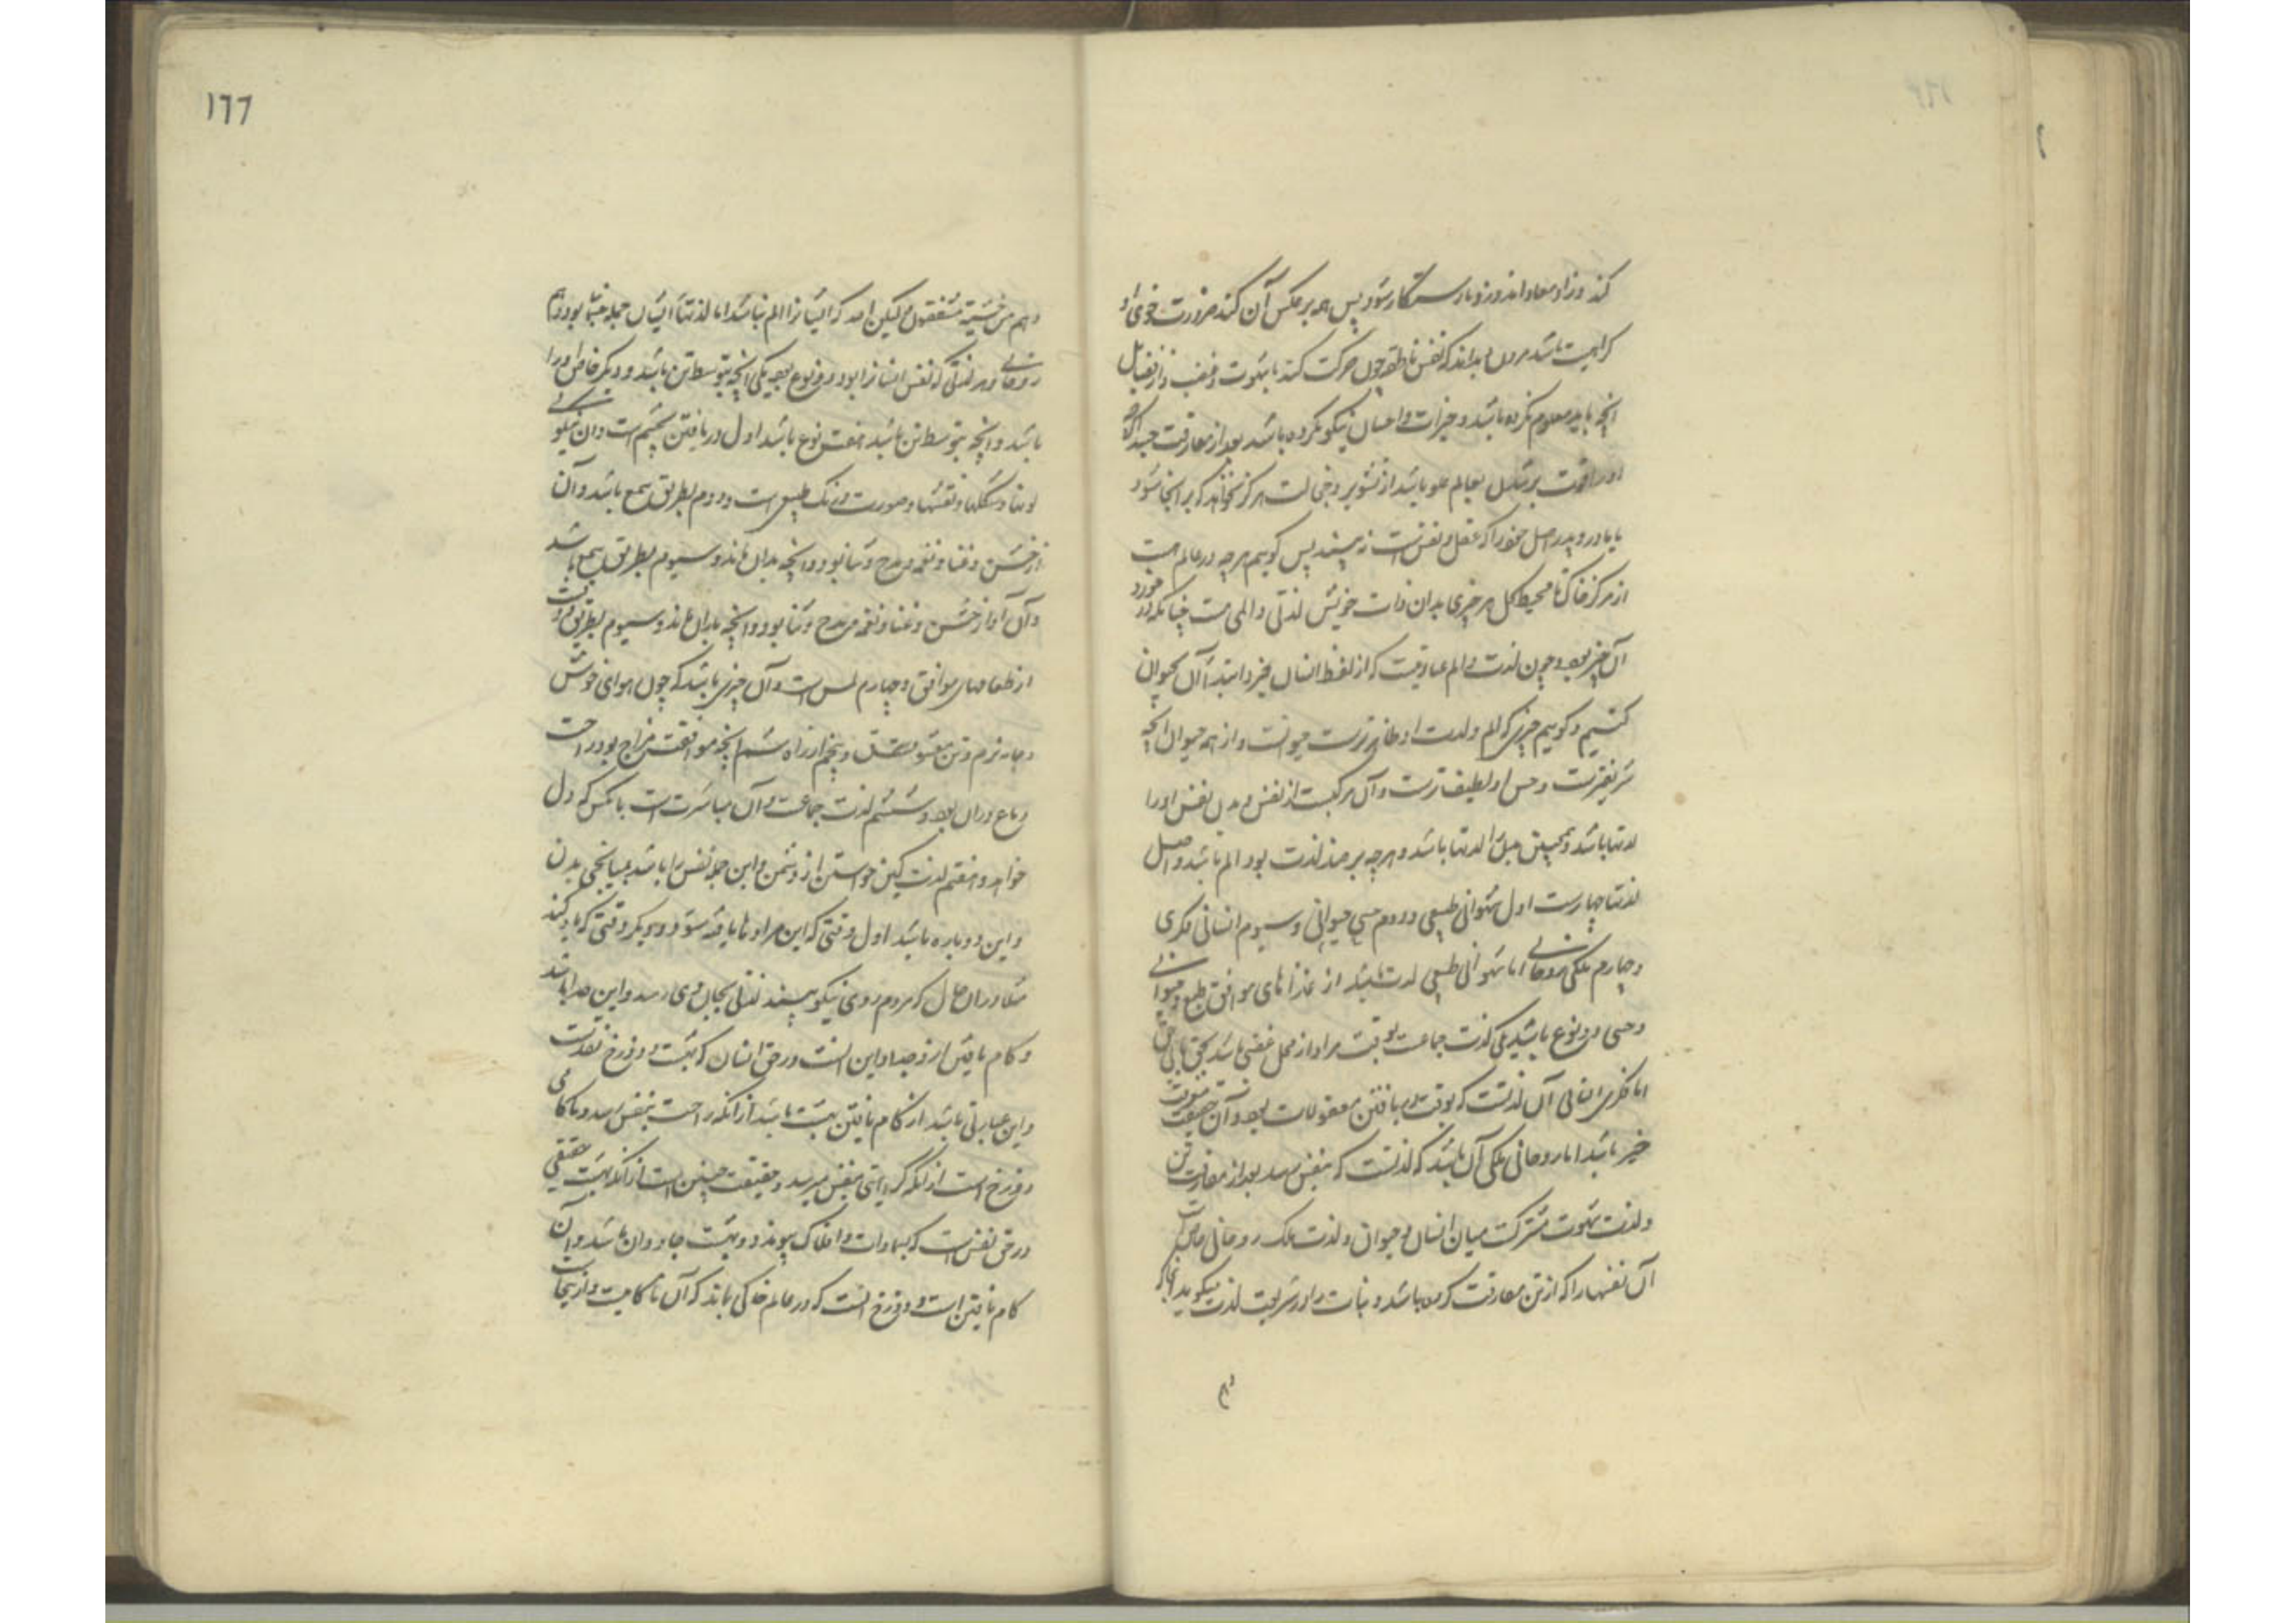 کند و زاد معاد اندوزد تا رستگار شود پس همه بر عکس آن کند ضرورت خوی او
کراهیت باشد بداند که نفس ناطقه چون حرکت کند بشهوت و غضب و از فضایل
آنچه باید معلوم نکرده باشد و خیرات و احسان نیکو نکرده باشد بعد از مفارقت جسد اگر
او را قوت بر شدن بعالم علو باشد از تشویر و خجالت هرگز نخواهد که بر آنجا شود
یا مادر و پدر اصل خود را که عقل و نفس است نه بیند پس گوییم هر چه در عالم هست
از مرکز خاک تا محیط کل هر چیزی بدان ذات خویش لذتی و المی هست چنانکه در خورد
آن چیز بود و چون لذت و الم عبارتیست که از لفظ انسان خیزد ابتدا آن بحیوان
کنیم و گوییم چیزی که الم و لذت او ظاهرترست حیوانست و از همه حیوان آنچه
شریفترست و حس او لطیف ترست و آن مرکبست از نفس و بدن نفس او را
لذتها باشد و همچنین مثل المها باشد و هر چه بر ضد لذت بود الم باشد و اصل
لذتها چهارست اول شهوانی طبیعی و دوم حسی حیوانی و سیوم انسانی فکری
و چهارم ملکی روحانی اما شهوانی طبیعی لذت باشد از غذاهای موافق طبع و حیوانی
و حسی دو نوع باشد یکی لذت جماعت بوقت مراد از محل غضبی باشد
اما فکری انسانی آن لذتست که بوقت دریافتن معقولات بود و آن حقیقت
خیر باشد اما روحانی ملکی آن باشد که لذتست که بنفس رسد بعد از مفارقت تن
و لذت شهوت مشترکست میان انسان و حیوان و لذت ملک روحانی خاص
آن نفسها را که از تن مفارقت کرده باشد و نبات را در شریعت لذت میگوید
وهم
١٦٦
وهم من خشیته مشفقون و لیکن که ایشان را الم نباشد اما لذتها ایشان جمله بود
روحانی و هر لذتی که نفس انسان را بود دو نوع بود یکی آنچه بتوسط تن باشد و دیگر خاص او را
باشد و آنچه بتوسط تن باشد هفت نوع باشد اول دریافتن بچشم است و آن نیکو
لونها و شکلها و نقشها و صورت و رنگ طبیعی است و دوم بطریق سمع باشد و آن
از خشن و غنا و نغمه و مدح و ثنا بود و آنچه بدان ماند و سیوم بطریق سمع باشد
و آن آواز خشن و غنا و نغمه و مدح و ثنا بود و آنچه بدان ماند و سیوم بطریق ذوقست
از طعامهای موافق و چهارم لمس است و آن چیزی باشد که چون هوای خوش
و جامه نرم و تن معشوق و پنجم از راه شم آنچه موافقت مزاج بود راحت
دماغ در آن بود و ششم لذت جماعت و آن مباشرت است با آنکس که دل
خواهد و هفتم لذت کین خواستن از دشمن و این جمله نفس را باشد بمیانجی بدن
و این دو باره باشد اول وقتی که این مرادها یافته شود و دیگر وقتی که یاد کند
مثلا در آن حال که مردم روی نیکو بیند لذتی بجان وی رسد و این جدا باشد
و کام یافتن از و جدا و این است در حق انسان که بهشت و دوزخ نقدست
و این عبارتی باشد از کام یافتن بهشت باشد از آنکه راحت بنفس رسد و ناکامی
دوزخ است از آنکه کراهیتی بنفس میرسد و حقیقت چنین است از آنکه بهشت حقیقی
در حق نفس است که بسماوات و افلاک پیوندد و بهشت جاودان باشد و آن
کام یافتن است و دوزخ آنست که در عالم خاکی بماند که آن ناکامیست و از اینجاست